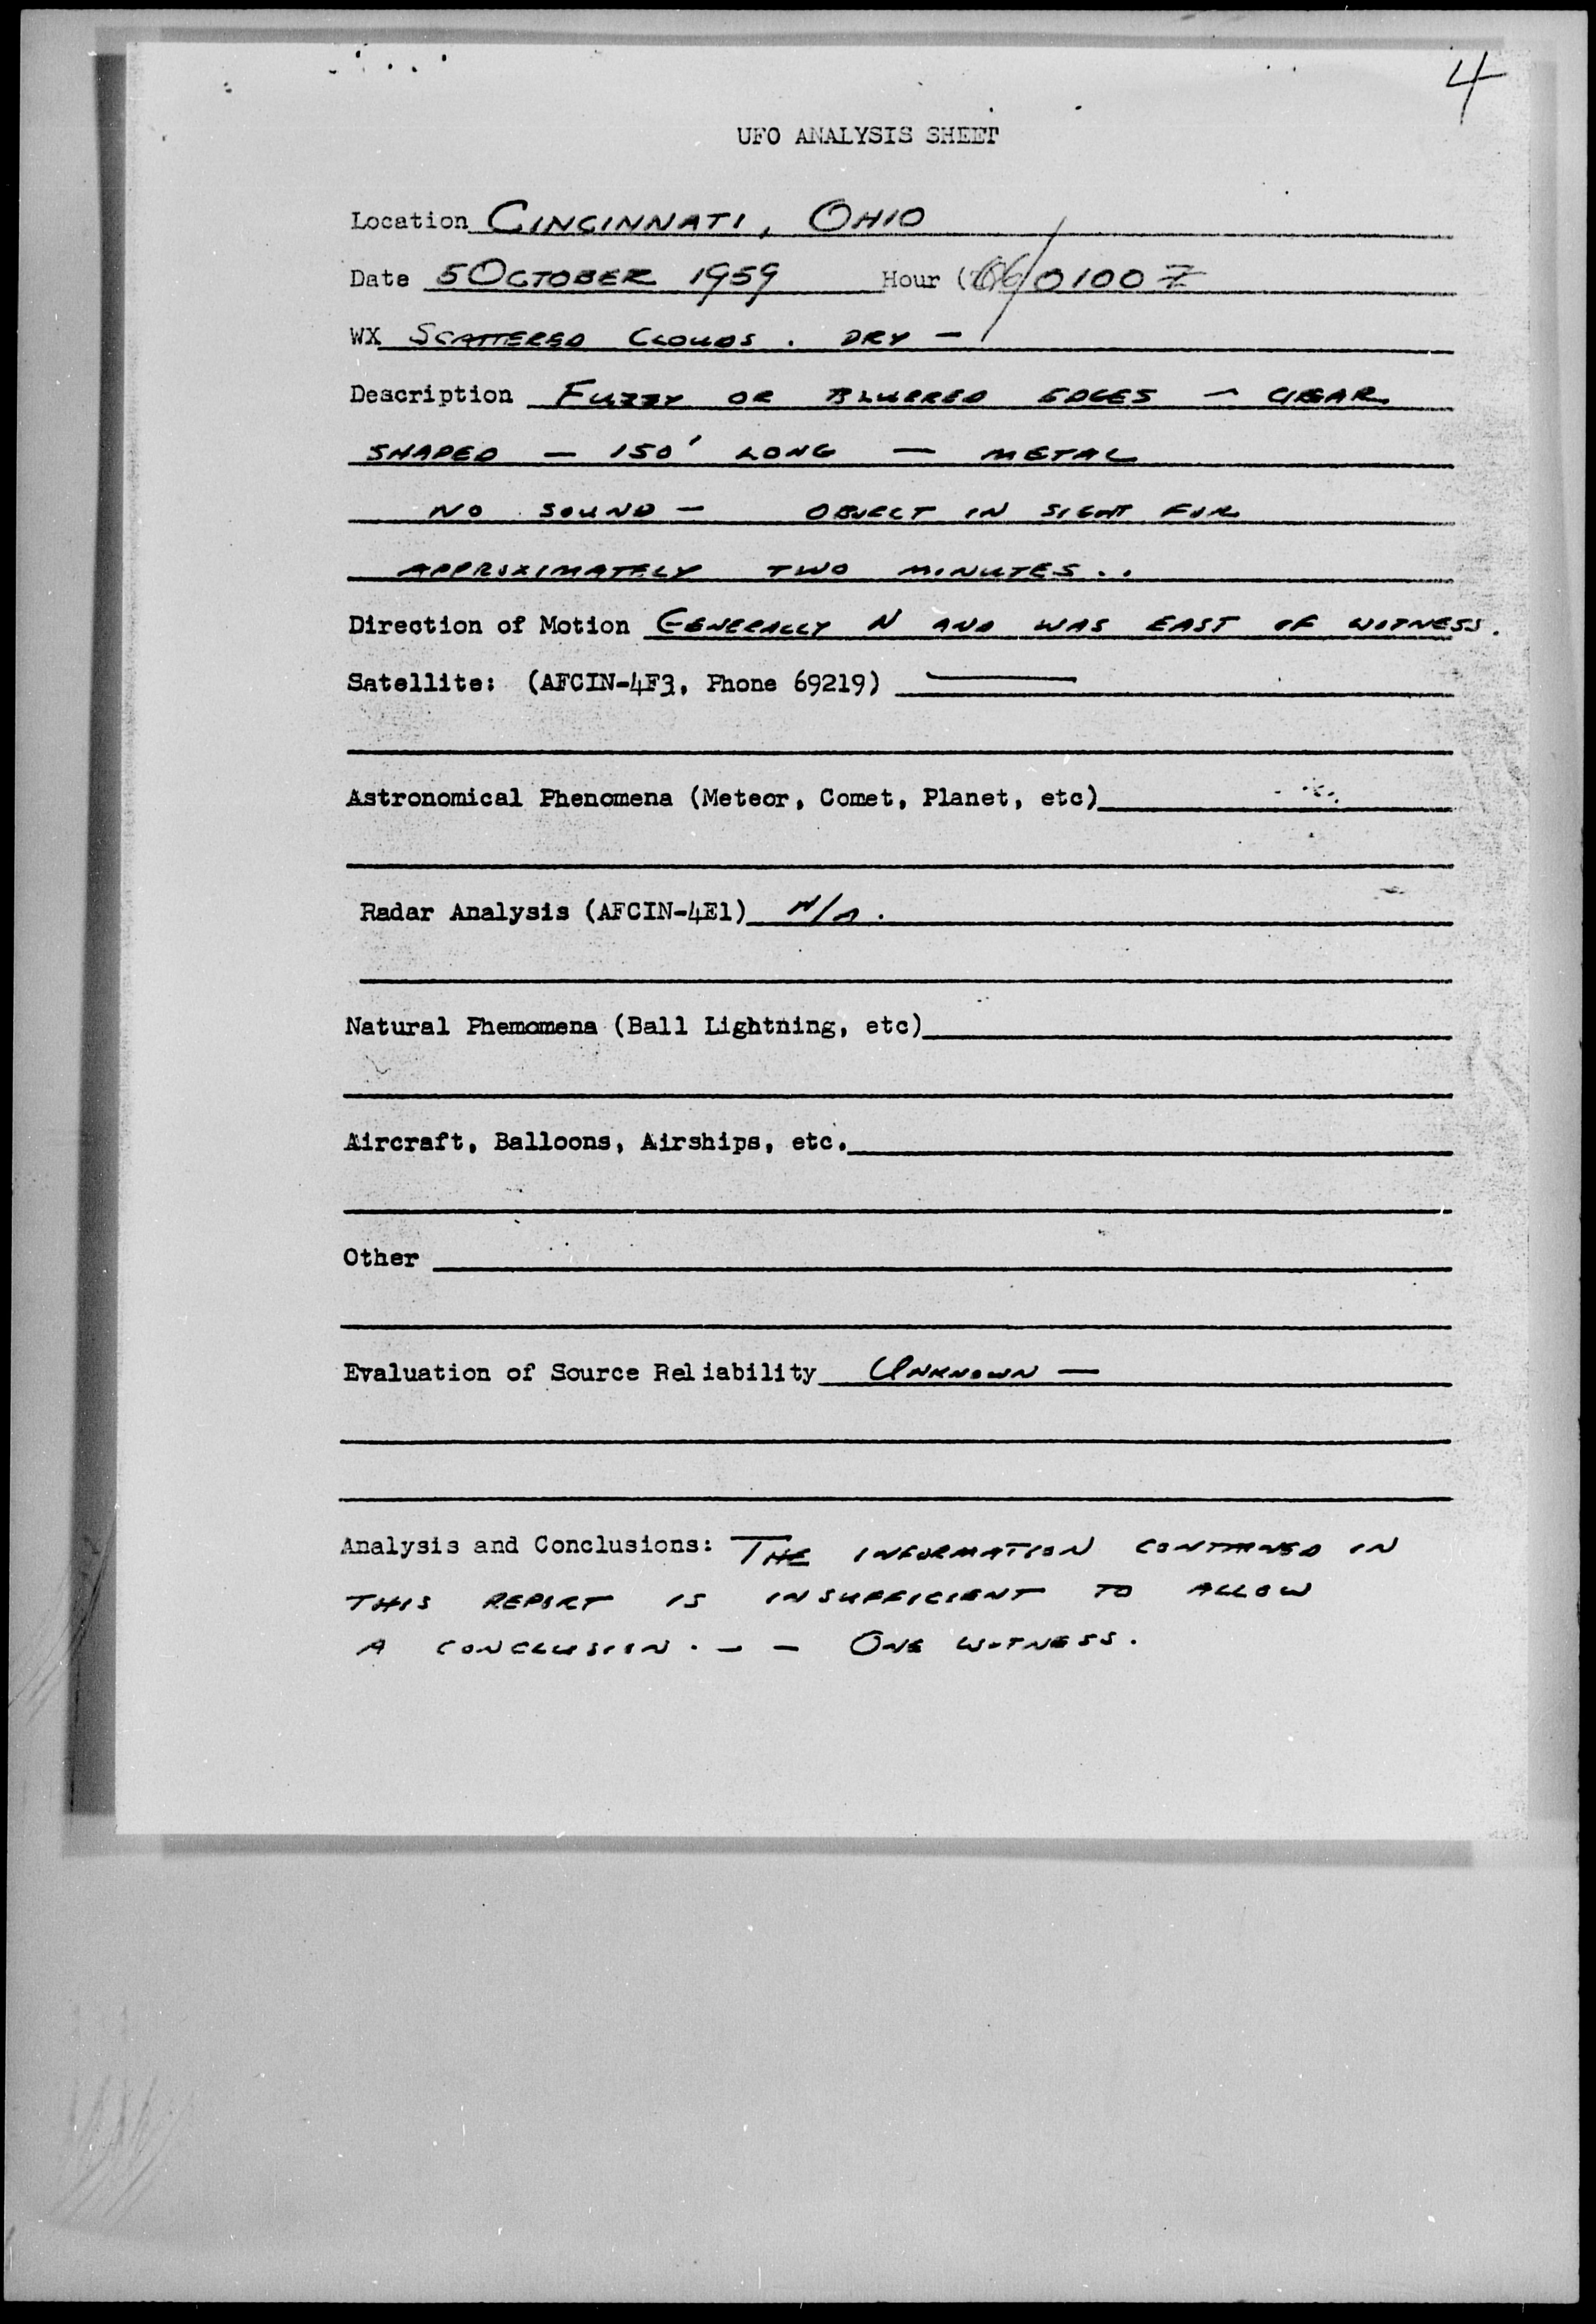 4
UFO ANALYSIS SHEET
Location CINCINNATI, OHIO
Date 5 OCTOBER 1959 Hour (06/0100Z
WX SCATTERED CLOUDS. DRY —
Description FUZZY OR BLURRED EDGES — CIGAR
SHAPED — 150' LONG — METAL
NO SOUND — OBJECT IN SIGHT FOR
APPROXIMATELY TWO MINUTES..
Direction of Motion GENERALLY N AND WAS EAST OF WITNESS.
Satellite: (AFCIN-4F3, Phone 69219) —
Astronomical Phenomena (Meteor, Comet, Planet, etc)
Radar Analysis (AFCIN-4E1) N/A.
Natural Phemomena (Ball Lightning, etc)
Aircraft, Balloons, Airships, etc.
Other
Evaluation of Source Reliability UNKNOWN —
Analysis and Conclusions: THE INFORMATION CONTAINED IN
THIS REPORT IS INSUFFICIENT TO ALLOW
A CONCLUSION. — — ONE WITNESS.